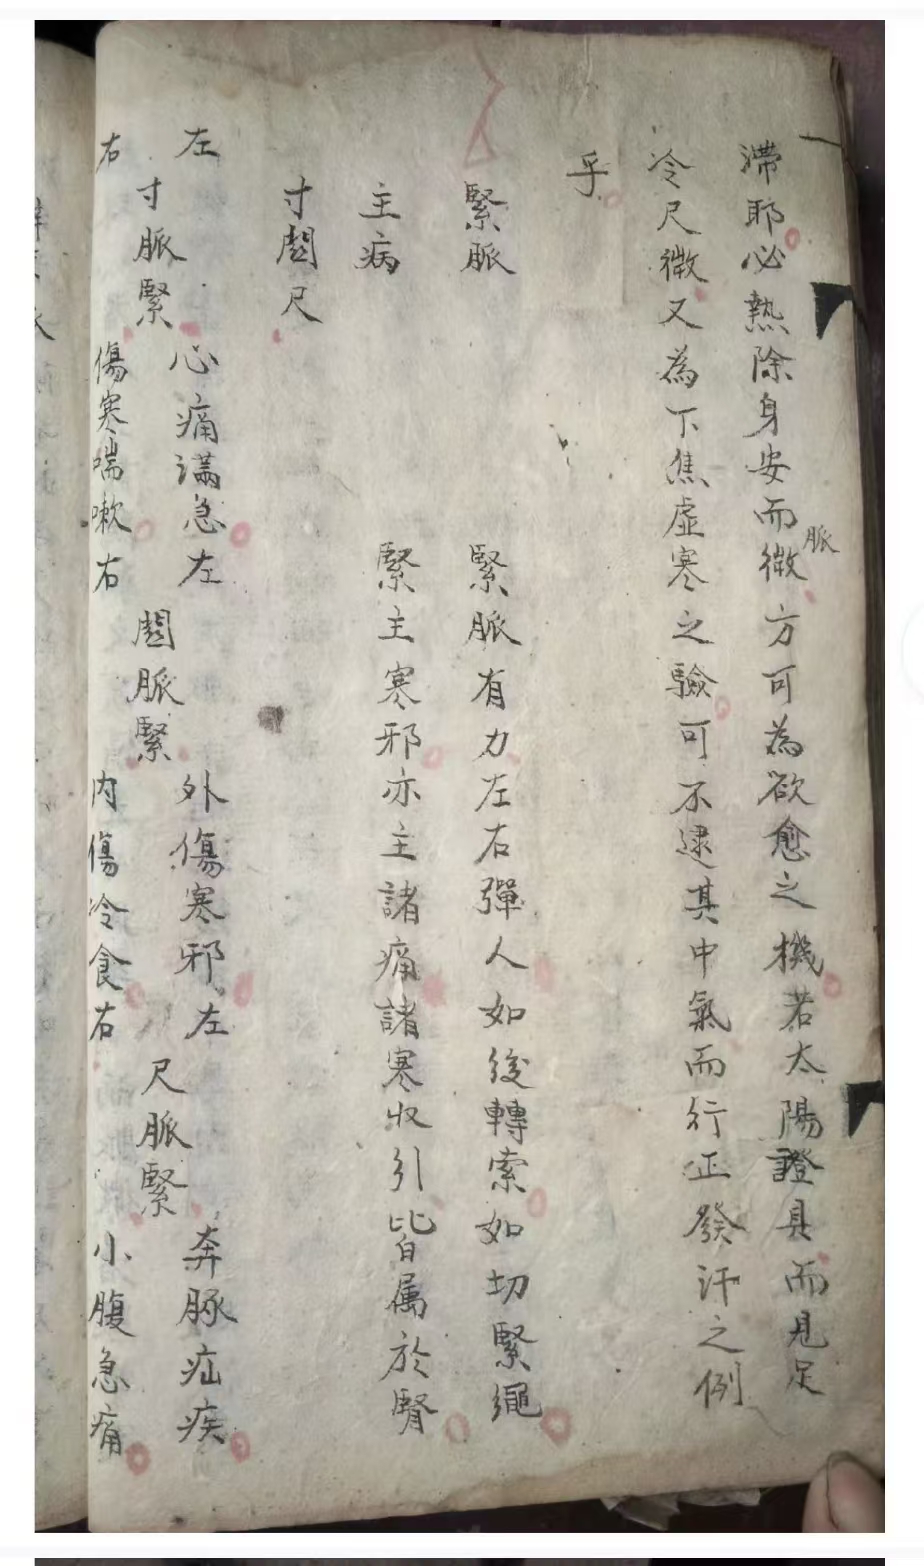 滯耶必熱除身安而微脈方可為欲愈之機若太陽證具而見足
冷尺微又為下焦虛寒之驗可不逮其中氣而行正發汗之例
乎
緊脈 緊脈有力左右彈人如後轉索如切緊繩
主病 緊主寒邪亦主諸痛諸寒收引皆属於腎
寸関尺
左 心痛滿急左 外傷寒邪左 奔豚疝疾
寸脈緊 関脈緊 尺脈緊
右 傷寒喘嗽右 內傷冷食右 小腹急痛